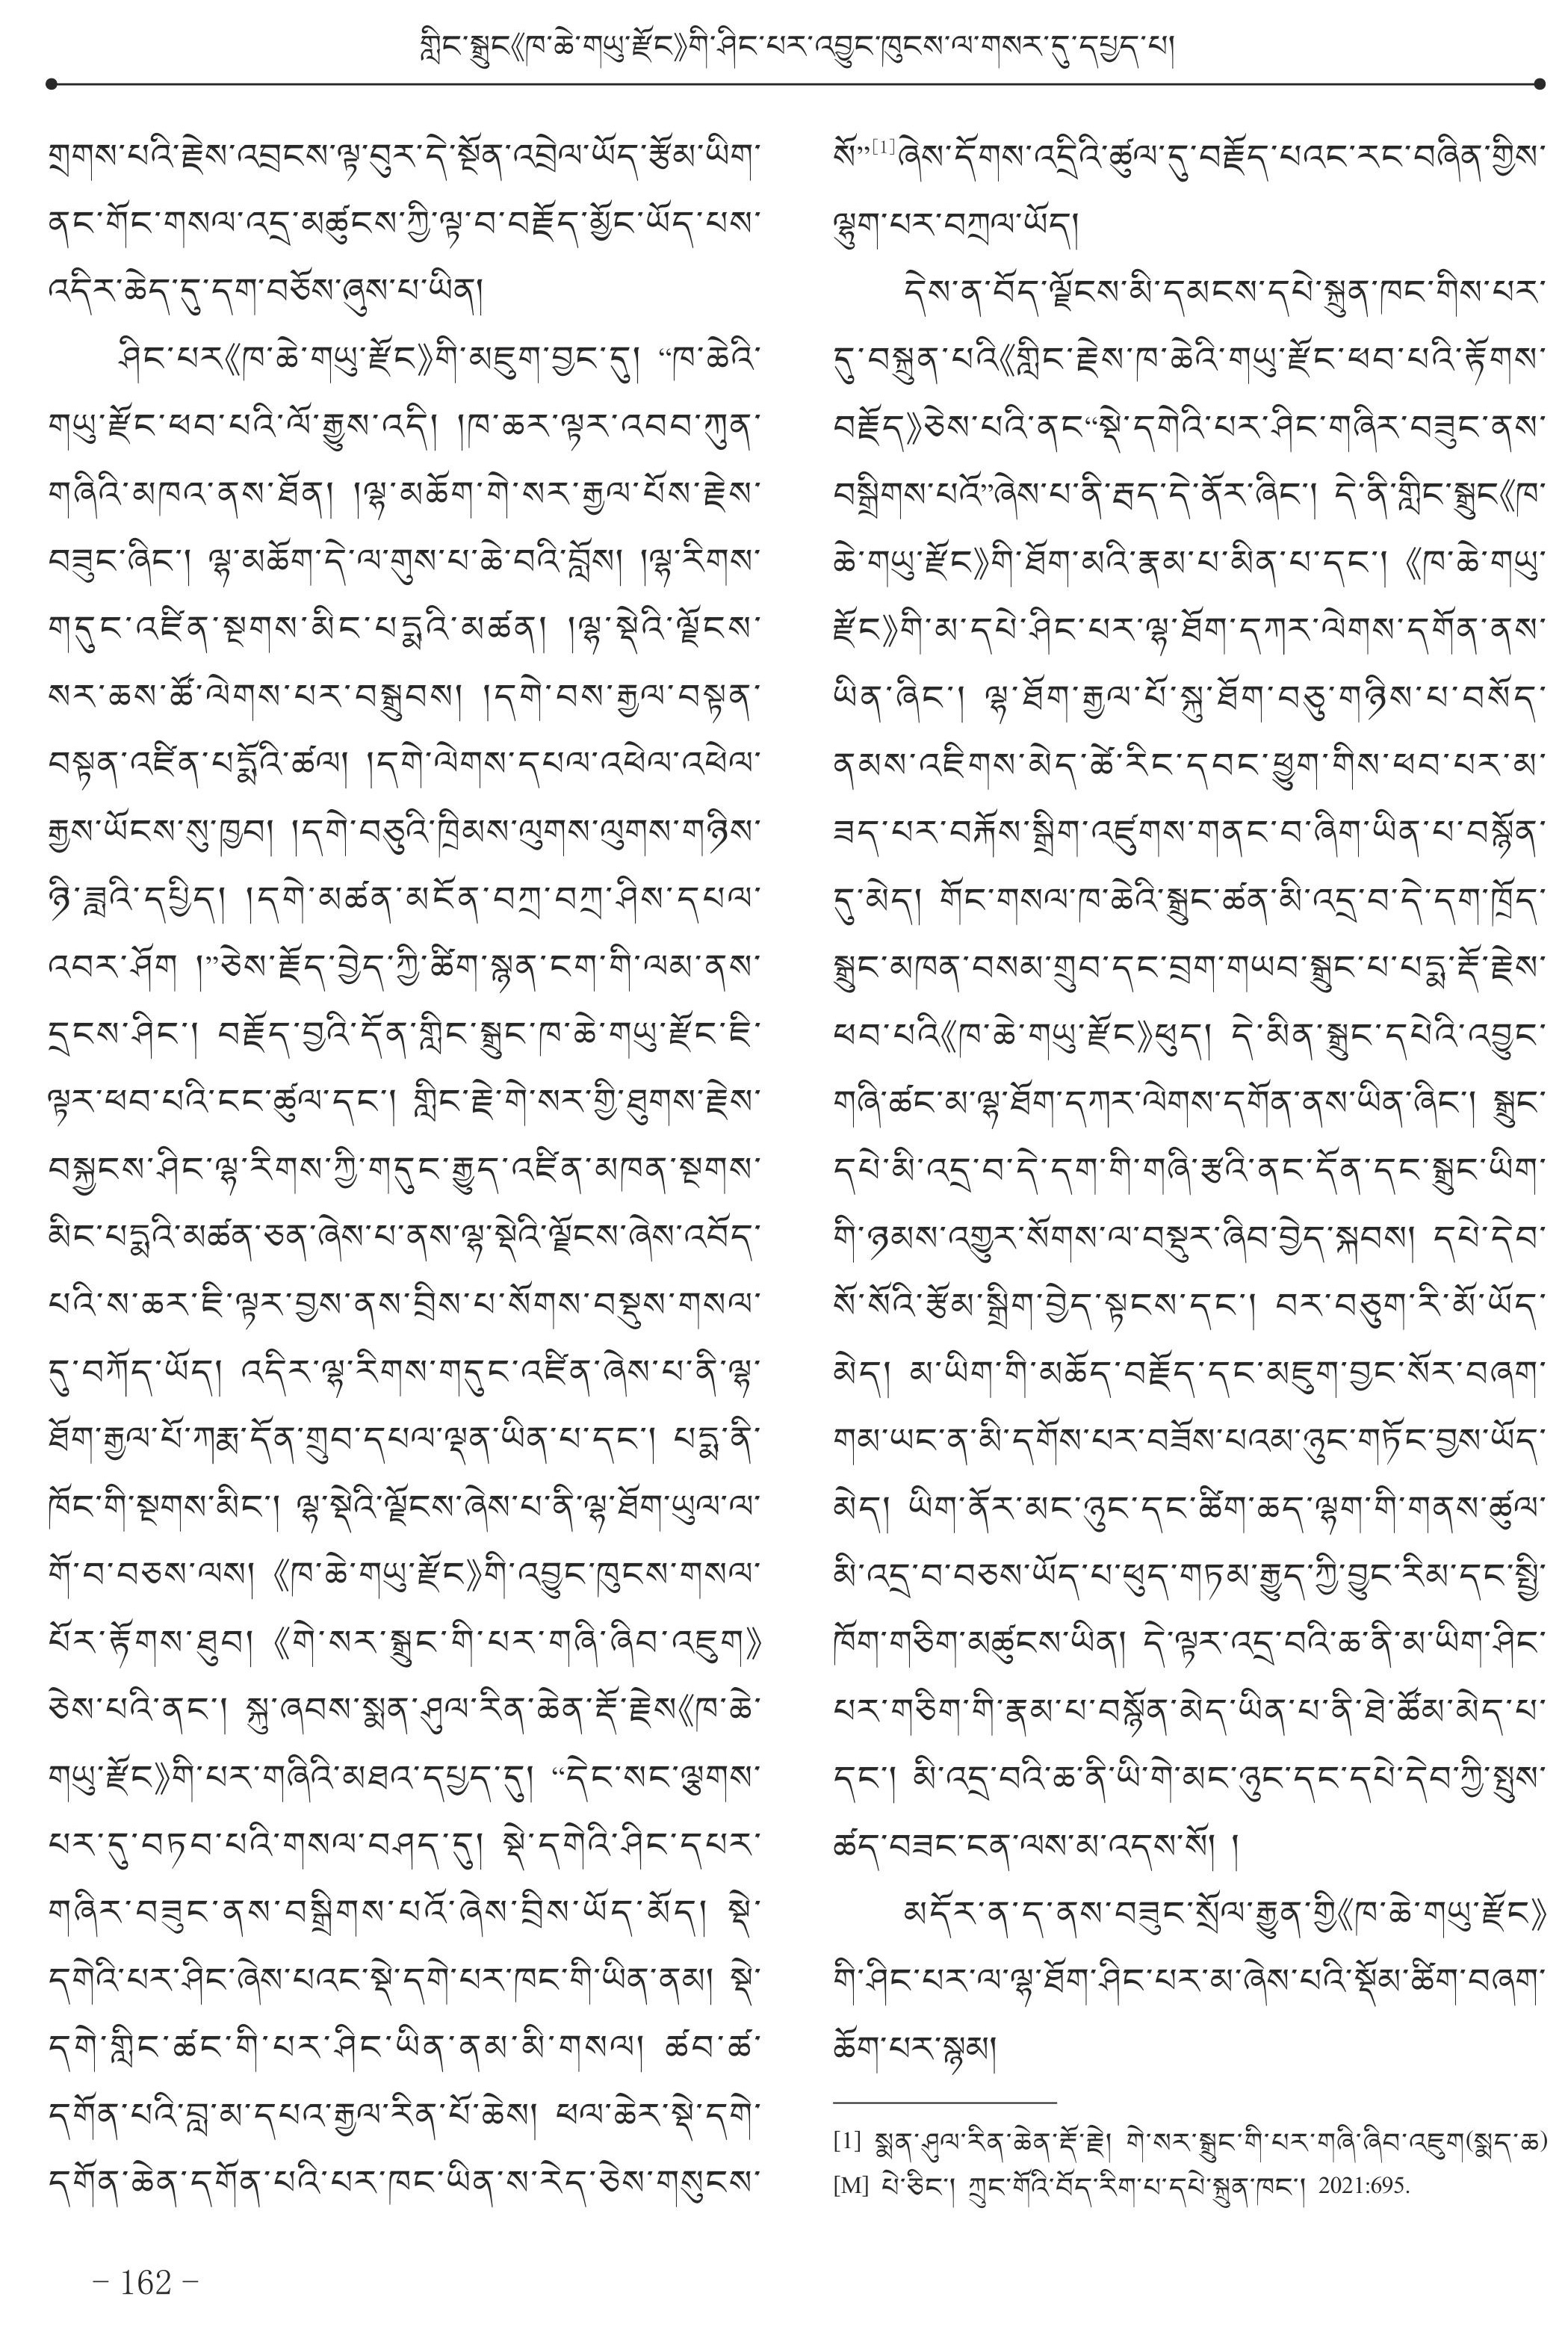 གླིང་སྒྲུང《ཁ་ཆེ་གཡུ་རྫོང》གི་ཤིང་པར་འབྱུང་ཁུངས་ལ་གསར་དུ་དཔྱད་པ།
གྲགས་པའི་རྗེས་འབྲངས་ལྟ་བུར་དེ་སྔོན་འབྲེལ་ཡོད་རྩོམ་ཡིག་
ནང་གོང་གསལ་འདྲ་མཚུངས་ཀྱི་ལྟ་བ་བརྗོད་མྱོང་ཡོད་པས་
འདིར་ཆེད་དུ་དག་བཅོས་ཞུས་པ་ཡིན།
ཤིང་པར《ཁ་ཆེ་གཡུ་རྫོང》གི་མཇུག་བྱང་དུ། “ཁ་ཆེའི་
གཡུ་རྫོང་ཕབ་པའི་ལོ་རྒྱུས་འདི། །ཁ་ཆར་ལྟར་འབབ་ཀུན་
གཞིའི་མཁའ་ནས་ཐོན། །ལྷ་མཆོག་གེ་སར་རྒྱལ་པོས་རྗེས་
བཟུང་ཞིང་། ལྷ་མཆོག་དེ་ལ་གུས་པ་ཆེ་བའི་བློས། །ལྷ་རིགས་
གདུང་འཛིན་སྔགས་མིང་པདྨའི་མཚན། །ལྷ་སྡེའི་ལྗོངས་
སར་ཆས་ཚོ་ལེགས་པར་བསྒྲུབས། །དགེ་བས་རྒྱལ་བསྟན་
བསྟན་འཛིན་པདྨོའི་ཚལ། །དགེ་ལེགས་དཔལ་འཕེལ་འཕེལ་
རྒྱས་ཡོངས་སུ་ཁྱབ། །དགེ་བཅུའི་ཁྲིམས་ལུགས་ལུགས་གཉིས་
ཉི་ཟླའི་དཔྱིད། །དགེ་མཚན་མངོན་བཀྲ་བཀྲ་ཤིས་དཔལ་
འབར་ཤོག །”ཅེས་རྗོད་བྱེད་ཀྱི་ཚིག་སྙན་ངག་གི་ལམ་ནས་
དྲངས་ཤིང་། བརྗོད་བྱའི་དོན་གླིང་སྒྲུང་ཁ་ཆེ་གཡུ་རྫོང་ཇི་
ལྟར་ཕབ་པའི་ངང་ཚུལ་དང་། གླིང་རྗེ་གེ་སར་གྱི་ཐུགས་རྗེས་
བསྐྱངས་ཤིང་ལྷ་རིགས་ཀྱི་གདུང་རྒྱུད་འཛིན་མཁན་སྔགས་
མིང་པདྨའི་མཚན་ཅན་ཞེས་པ་ནས་ལྷ་སྡེའི་ལྗོངས་ཞེས་འབོད་
པའི་ས་ཆར་ཇི་ལྟར་བྱས་ནས་བྲིས་པ་སོགས་བསྡུས་གསལ་
དུ་བཀོད་ཡོད། འདིར་ལྷ་རིགས་གདུང་འཛིན་ཞེས་པ་ནི་ལྷ་
ཐོག་རྒྱལ་པོ་ཀརྨ་དོན་གྲུབ་དཔལ་ལྡན་ཡིན་པ་དང་། པདྨ་ནི་
ཁོང་གི་སྔགས་མིང་། ལྷ་སྡེའི་ལྗོངས་ཞེས་པ་ནི་ལྷ་ཐོག་ཡུལ་ལ་
གོ་བ་བཅས་ལས། 《ཁ་ཆེ་གཡུ་རྫོང》གི་འབྱུང་ཁུངས་གསལ་
པོར་རྟོགས་ཐུབ། 《གེ་སར་སྒྲུང་གི་པར་གཞི་ཞིབ་འཇུག》
ཅེས་པའི་ནང་། སྐུ་ཞབས་སྨན་ཤུལ་རིན་ཆེན་རྡོ་རྗེས《ཁ་ཆེ་
གཡུ་རྫོང》གི་པར་གཞིའི་མཐའ་དཔྱད་དུ། “དེང་སང་ལྕགས་
པར་དུ་བཏབ་པའི་གསལ་བཤད་དུ། སྡེ་དགེའི་ཤིང་དཔར་
གཞིར་བཟུང་ནས་བསྒྲིགས་པའོ་ཞེས་བྲིས་ཡོད་མོད། སྡེ་
དགེའི་པར་ཤིང་ཞེས་པའང་སྡེ་དགེ་པར་ཁང་གི་ཡིན་ནམ། སྡེ་
དགེ་གླིང་ཚང་གི་པར་ཤིང་ཡིན་ནམ་མི་གསལ། ཚབ་ཚ་
དགོན་པའི་བླ་མ་དཔའ་རྒྱལ་རིན་པོ་ཆེས། ཕལ་ཆེར་སྡེ་དགེ་
དགོན་ཆེན་དགོན་པའི་པར་ཁང་ཡིན་ས་རེད་ཅེས་གསུངས་
སོ”[1]ཞེས་དོགས་འདྲིའི་ཚུལ་དུ་བརྗོད་པའང་རང་བཞིན་གྱིས་
ལྷུག་པར་བཀྲལ་ཡོད།
དེས་ན་བོད་ལྗོངས་མི་དམངས་དཔེ་སྐྲུན་ཁང་གིས་པར་
དུ་བསྐྲུན་པའི《གླིང་རྗེས་ཁ་ཆེའི་གཡུ་རྫོང་ཕབ་པའི་རྟོགས་
བརྗོད》ཅེས་པའི་ནང“སྡེ་དགེའི་པར་ཤིང་གཞིར་བཟུང་ནས་
བསྒྲིགས་པའོ”ཞེས་པ་ནི་རྦད་དེ་ནོར་ཞིང་། དེ་ནི་གླིང་སྒྲུང《ཁ་
ཆེ་གཡུ་རྫོང》གི་ཐོག་མའི་རྣམ་པ་མིན་པ་དང་། 《ཁ་ཆེ་གཡུ་
རྫོང》གི་མ་དཔེ་ཤིང་པར་ལྷ་ཐོག་དཀར་ལེགས་དགོན་ནས་
ཡིན་ཞིང་། ལྷ་ཐོག་རྒྱལ་པོ་སྐུ་ཐོག་བཅུ་གཉིས་པ་བསོད་
ནམས་འཇིགས་མེད་ཚེ་རིང་དབང་ཕྱུག་གིས་ཕབ་པར་མ་
ཟད་པར་བརྐོས་སྒྲིག་འཛུགས་གནང་བ་ཞིག་ཡིན་པ་བསྙོན་
དུ་མེད། གོང་གསལ་ཁ་ཆེའི་སྒྲུང་ཚན་མི་འདྲ་བ་དེ་དག་ཁྲོད་
སྒྲུང་མཁན་བསམ་གྲུབ་དང་བྲག་གཡབ་སྒྲུང་པ་པདྨ་རྡོ་རྗེས་
ཕབ་པའི《ཁ་ཆེ་གཡུ་རྫོང》ཕུད། དེ་མིན་སྒྲུང་དཔེའི་འབྱུང་
གཞི་ཚང་མ་ལྷ་ཐོག་དཀར་ལེགས་དགོན་ནས་ཡིན་ཞིང་། སྒྲུང་
དཔེ་མི་འདྲ་བ་དེ་དག་གི་གཞི་རྩའི་ནང་དོན་དང་སྒྲུང་ཡིག་
གི་ཉམས་འགྱུར་སོགས་ལ་བསྡུར་ཞིབ་བྱེད་སྐབས། དཔེ་དེབ་
སོ་སོའི་རྩོམ་སྒྲིག་བྱེད་སྟངས་དང་། བར་བཅུག་རི་མོ་ཡོད་
མེད། མ་ཡིག་གི་མཆོད་བརྗོད་དང་མཇུག་བྱང་སོར་བཞག་
གམ་ཡང་ན་མི་དགོས་པར་བཟོས་པའམ་ཉུང་གཏོང་བྱས་ཡོད་
མེད། ཡིག་ནོར་མང་ཉུང་དང་ཚིག་ཆད་ལྷག་གི་གནས་ཚུལ་
མི་འདྲ་བ་བཅས་ཡོད་པ་ཕུད་གཏམ་རྒྱུད་ཀྱི་བྱུང་རིམ་དང་སྤྱི་
ཁོག་གཅིག་མཚུངས་ཡིན། དེ་ལྟར་འདྲ་བའི་ཆ་ནི་མ་ཡིག་ཤིང་
པར་གཅིག་གི་རྣམ་པ་བསྙོན་མེད་ཡིན་པ་ནི་ཐེ་ཚོམ་མེད་པ་
དང་། མི་འདྲ་བའི་ཆ་ནི་ཡི་གེ་མང་ཉུང་དང་དཔེ་དེབ་ཀྱི་སྤུས་
ཚད་བཟང་ངན་ལས་མ་འདས་སོ། །
མདོར་ན་ད་ནས་བཟུང་སྲོལ་རྒྱུན་གྱི《ཁ་ཆེ་གཡུ་རྫོང》
གི་ཤིང་པར་ལ་ལྷ་ཐོག་ཤིང་པར་མ་ཞེས་པའི་སྡོམ་ཚིག་བཞག་
ཆོག་པར་སྙམ།
[1] སྨན་ཤུལ་རིན་ཆེན་རྡོ་རྗེ། གེ་སར་སྒྲུང་གི་པར་གཞི་ཞིབ་འཇུག(སྨད་ཆ)
[M] པེ་ཅིང་། ཀྲུང་གོའི་བོད་རིག་པ་དཔེ་སྐྲུན་ཁང་། 2021:695.
– 162 –